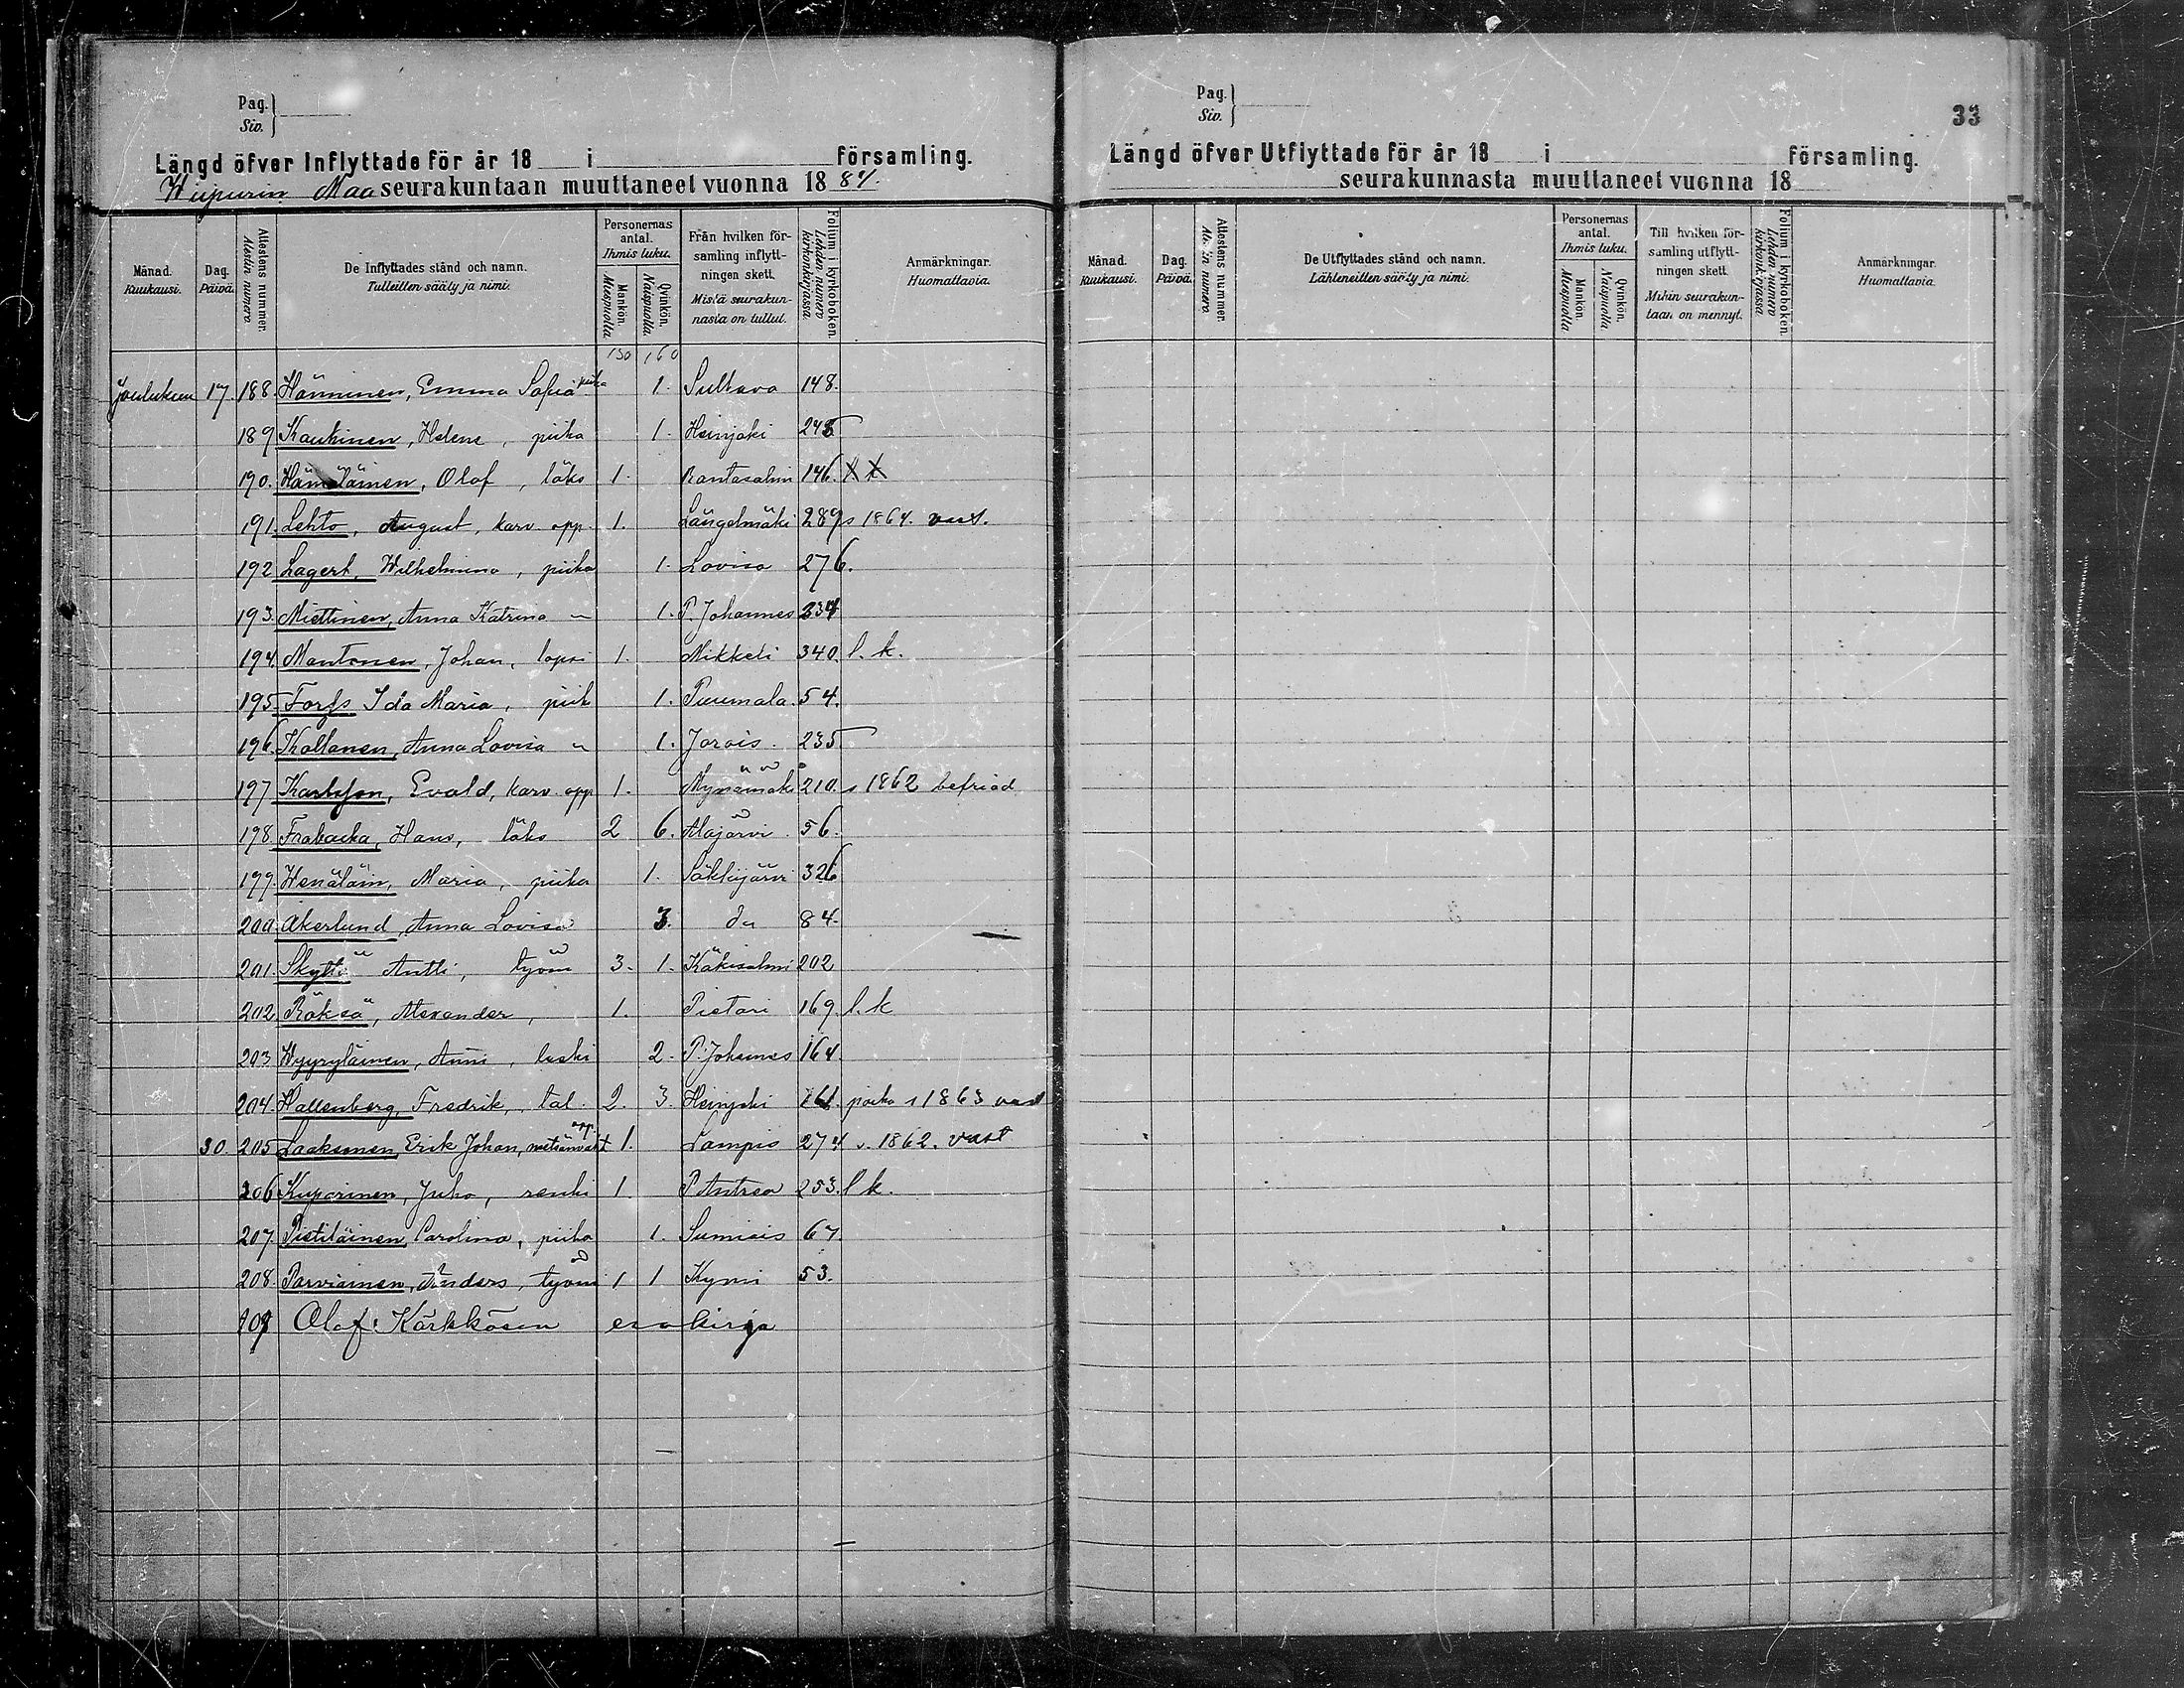 Pag.
Siv.
Längd öfver Inflyttade för år 18 i församling.
Wiipurin Maa seurakuntaan muuttaneet vuonna 1884.
Månad. Kuukausi.
Dag. Päivä.
Attestens nummer. Atestin numero
De Inflyttades stånd och namn.
Tulleitten sääty ja nimi.
Personernas antal.
Ihmis luku.
Mankön. Miespuolta
Qvinkön. Naispuolta
Från hvilken församling inflyttningen skett.
Mistä seurakunnasta on tullut.
Folium i kyrkoboken. Lehden numero kirkonkirjassa.
Anmärkningar.
Huomattavia.
130 160
Joulukuu 17. 188. Hänninen, Emma Sofia piika 1. Sulkava 148.
189 Kaukinen, Helena, piika 1. Heinjoki 245
190. Hämäläinen, Olof, läks 1. Rantasalmi 146.
191. Lehto, August, karv. opp. 1. Längelmäki 289 s 1864. vast.
192 Lagert, Wilhelmina, piika 1. Lovisa 276.
193. Miettinen, Anna Katrina 〃 1. P. Johannes 334
194. Mantonen, Johan, lapsi 1. Mikkeli 340. l. k.
195. Forss Ida Maria, piik 1. Puumala. 54.
196. Kollanen, Anna Lovisa 〃 1. Jorois. 235
197 Karlsson, Evald, karv. opp 1. Mynämäki 210. s 1862 befriad
198. Frabacka, Hans, läks 2 6. Alajärvi 56.
199. Henäläin, Maria, piika 1. Säkkijärvi 326
200. Åkerlund, Anna Lovisa 3. du 84.
201. Skyttä Antti, työm 3. 1. Käkisalmi 202
202 Räksä, Alexander, 1. Pietari 169. l. k
203 Hyyryläinen, Anni, leski 2. P. Johannes 164.
204. Hallenberg, Fredrik, tal. 2. 3. Heinjoki 161. poika s 1863 vast
30. 205 Laaksonen, Erik Johan, metsänvart opp. 1. Lampis 274 s. 1862. vast
206 Kuparinen, Juho, renki 1. P. Antrea 253. l k.
207. Pistiläinen, Carolina, piika 1. Sumiais 67
208. Parviainen, Anders, työm 1 1 Kymi 53.
209 Olof Kärkkösen erokirja
Pag.
Siv.
33
Längd öfver Utflyttade för år 18 i församling.
seurakunnasta muuttaneet vuonna 18
Månad. Kuukausi.
Dag. Päivä.
Attestens nummer.
De Utflyttades stånd och namn.
Lähteneitten sääty ja nimi.
Personernas antal.
Ihmis luku.
Mankön. Miespuolta
Qvinkön. Naispuolta
Till hvilken församling utflyttningen skett.
Mihin seurakuntaan on mennyt.
Folium i kyrkoboken. Lehden numero kirkonkirjassa.
Anmärkningar.
Huomattavia.